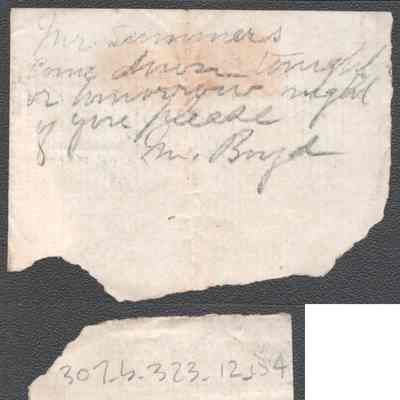 Mr. Summers
Come down tonight
or tomorrow night
if you please
M. Boyd
307.b.323.12.54